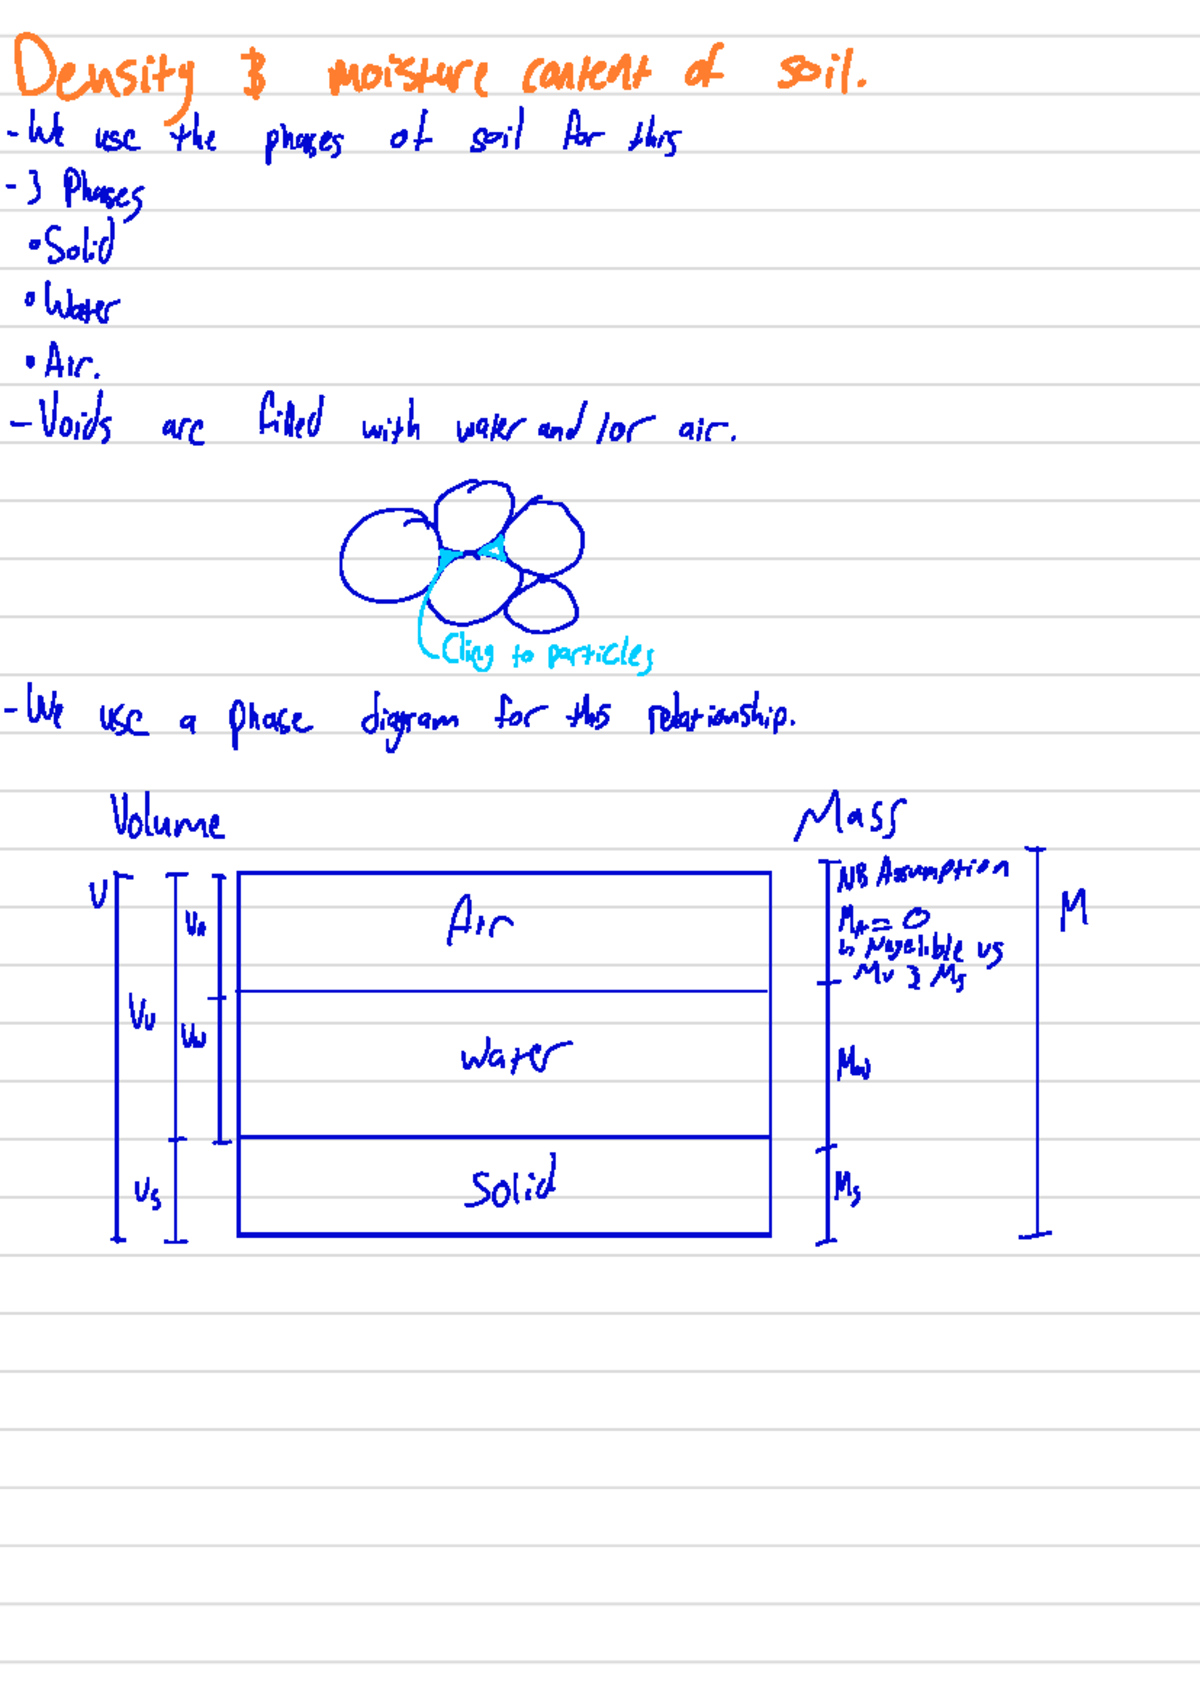 Density & moisture content of soil.
- We use the phases of soil for this
- 3 Phases
• Solid
• Water
• Air.
- Voids are filled with water and/or air.
Cling to particles
- We use a phase diagram for this relationship.
Volume
Mass
V
Vv
Vs
VA
Vw
Air
Water
Solid
NB Assumption
MA = 0
↳ Nagelible vs
Mw & Ms
Mw
Ms
M